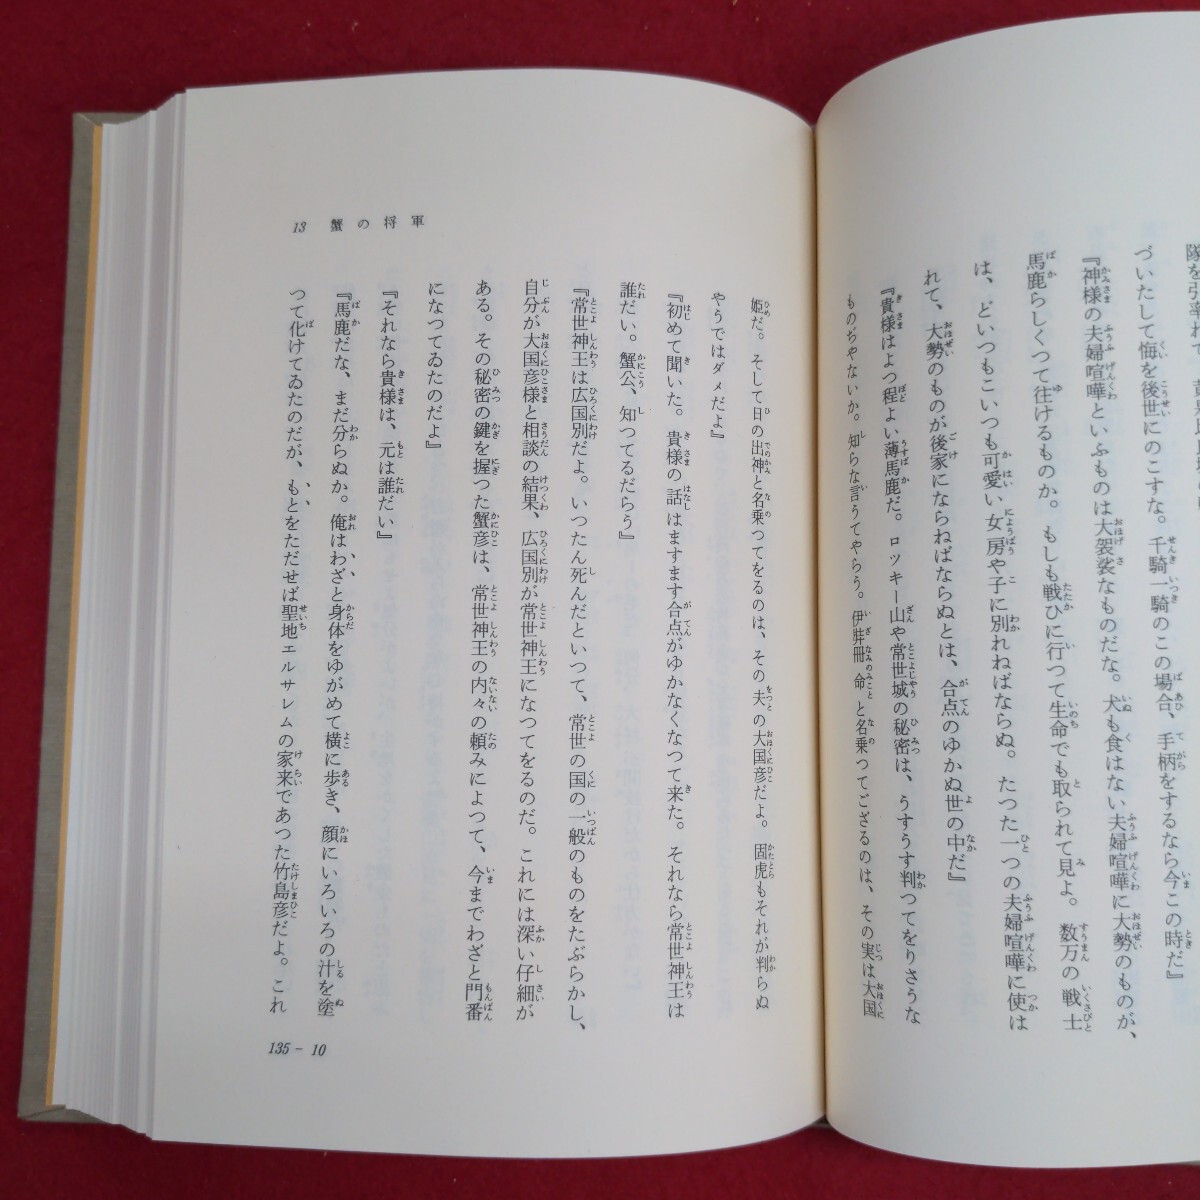 づいたして悔を後世にのこすな。千騎一騎のこの場合、手柄をするなら今この時だ』
『神様の夫婦喧嘩といふものは大袈裟なものだな。犬も食はない夫婦喧嘩に大勢のものが、
馬鹿らしくつて往けるものか。もしも戦ひに行つて生命でも取られて見よ。数万の戦士
は、どいつもこいつも可愛い女房や子に別れねばならぬ。たつた一つの夫婦喧嘩に使は
れて、大勢のものが後家にならねばならぬとは、合点のゆかぬ世の中だ』
『貴様はよつ程よい薄馬鹿だ。ロッキー山や常世城の秘密は、うすうす判つてをりさうな
ものぢやないか。知らな言うてやらう。伊弉冊命と名乗つてござるのは、その実は大国
姫だ。そして日の出神と名乗つてをるのは、その夫の大国彦だよ。固虎もそれが判らぬ
やうではダメだよ』
『初めて聞いた。貴様の話はますます合点がゆかなくなつて来た。それなら常世神王は
誰だい。蟹公、知つてるだらう』
『常世神王は広国別だよ。いつたん死んだといつて、常世の国の一般のものをたぶらかし、
自分が大国彦様と相談の結果、広国別が常世神王になつてをるのだ。これには深い仔細が
ある。その秘密の鍵を握つた蟹彦は、常世神王の内々の頼みによつて、今までわざと門番
になつてゐたのだよ』
『それなら貴様は、元は誰だい』
『馬鹿だな、まだ分らぬか。俺はわざと身体をゆがめて横に歩き、顔にいろいろの汁を塗
つて化けてゐたのだが、もとをただせば聖地エルサレムの家来であつた竹島彦だよ。これ
13 蟹の将軍
135－10